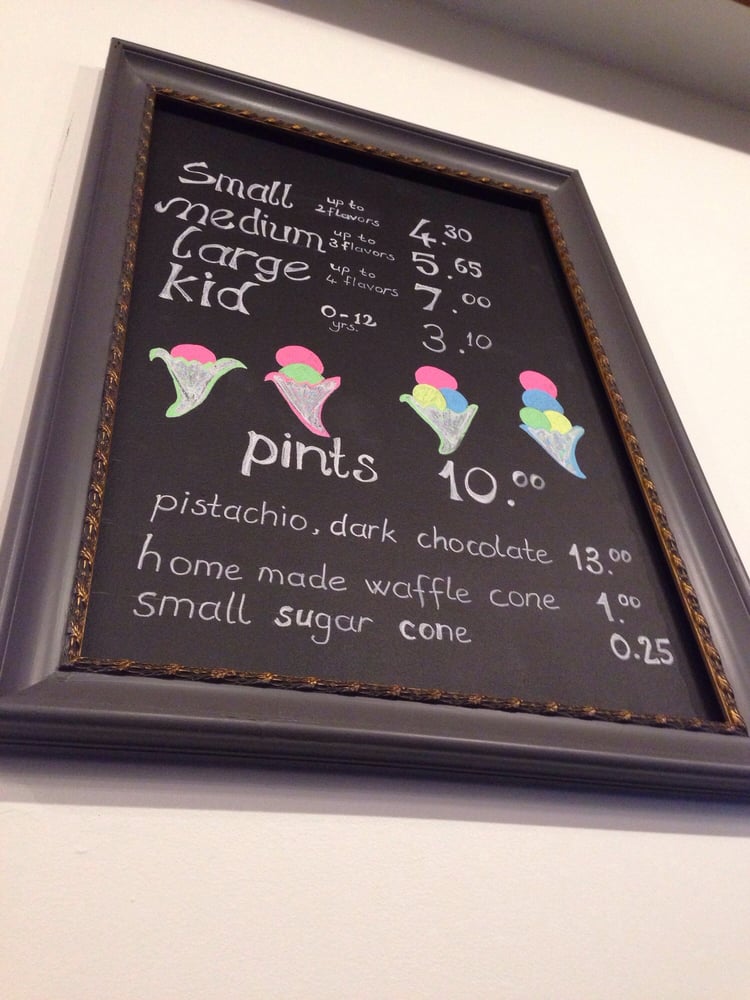 Small up to 2 flavors 4.30
medium up to 3 flavors 5.65
large up to 4 flavors 7.00
kid 0-12 yrs. 3.10
pints 10.00
pistachio, dark chocolate 13.00
home made waffle cone 1.00
small sugar cone 0.25